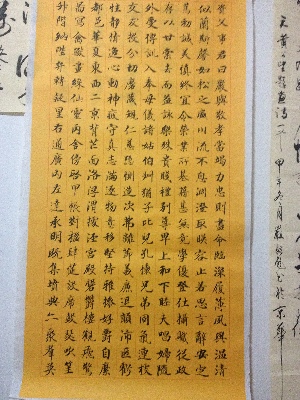 甲午冬月
資父事君曰嚴與敬孝當竭力忠則盡命臨深履薄夙興溫凊
似蘭斯馨如松之盛川流不息淵澄取映容止若思言辭安定
篤初誠美慎終宜令榮業所基籍甚無竟學優登仕攝職從政
存以甘棠去而益詠樂殊貴賤禮別尊卑上和下睦夫唱婦隨
外受傅訓入奉母儀諸姑伯叔猶子比兒孔懷兄弟同氣連枝
交友投分切磨箴規仁慈隱惻造次弗離節義廉退顛沛匪虧
性靜情逸心動神疲守真志滿逐物意移堅持雅操好爵自縻
都邑華夏東西二京背芒面洛浮渭據涇宮殿盤鬱樓觀飛驚
圖寫禽獸畫綵仙靈丙舍傍啟甲帳對楹肆筵設席鼓瑟吹笙
升階納陛弁轉疑星右通廣內左達承明既集墳典亦聚群英